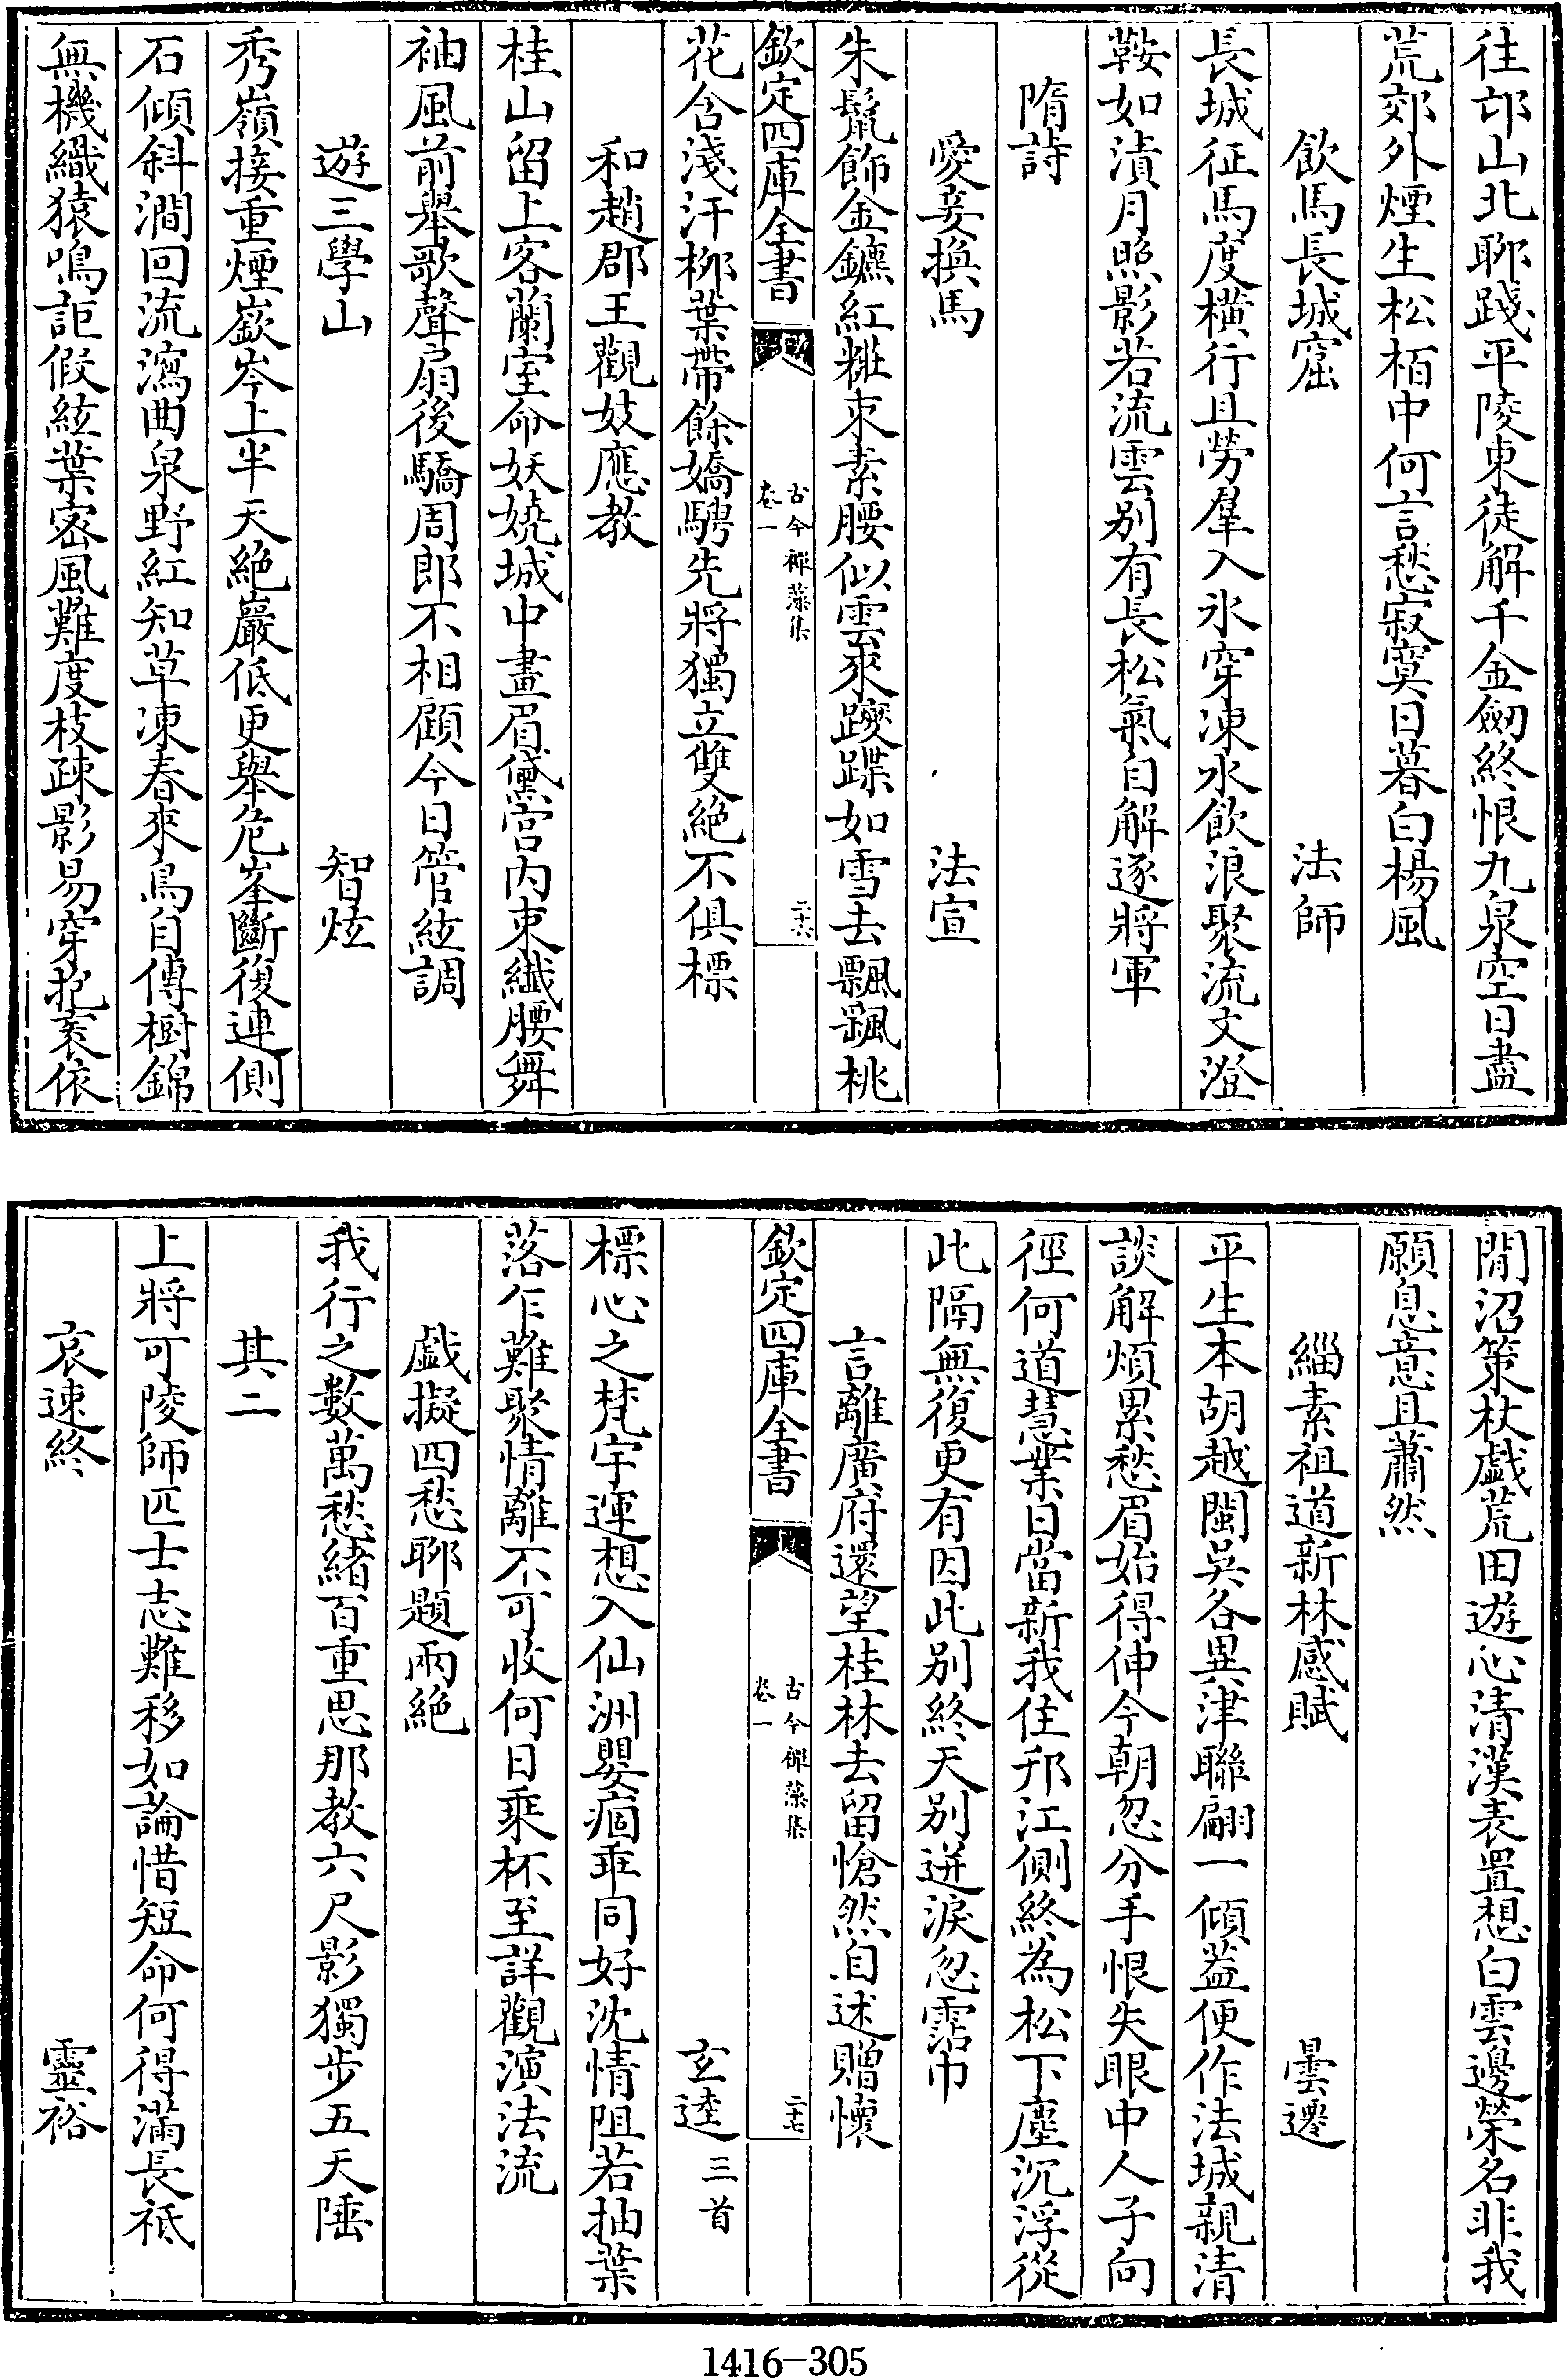 往邙山北聊踐平陵東徒解千金劒終恨九泉空日盡
荒郊外煙生松栢中何言愁寂寞日暮白楊風
飲馬長城窟 法師
長城征馬度橫行且勞羣入氷穿凍水飲浪聚流文澄
鞍如漬月照影若流雲别有長松氣自解逐將軍
隋詩
愛妾換馬 法宣
朱鬛飾金鑣紅糚束素腰似雲來躞蹀如雪去飄颻桃
欽定四庫全書 古今禪藻集 卷一 二十六
花含淺汗栁葉帶餘嬌騁先將獨立雙絶不俱標
和趙郡王觀妓應教
桂山留上客蘭室命妖嬈城中畫眉黛宫内束纎腰舞
袖風前舉歌聲扇後驕周郎不相顧今日管絃調
遊三學山 智炫
秀嶺接重煙嶔岑上半天絶巖低更舉危峯斷復連側
石傾斜澗回流瀉曲泉野紅知草凍春來鳥自傳樹錦
無機織猿鳴詎假絃葉宻風難度枝疎影易穿抱袠依
閒沼策杖戯荒田遊心清漢表置想白雲邊榮名非我
願息意且蕭然
緇素祖道新林感賦 曇遷
平生本胡越閩吳各異津聯翩一傾葢便作法城親清
談解煩累愁眉始得伸今朝忽分手恨失眼中人子向
徑何道慧業日當新我住邗江側終為松下塵沉浮從
此隔無復更有因此别終天别迸淚忽霑巾
言離廣府還望桂林去留愴然自述贈懷
欽定四庫全書 古今禪藻集 卷一 二十七
玄逵 三首
標心之梵宇運想入仙洲嬰痼乖同好沈情阻若抽葉
落乍難聚情離不可收何日乘杯至詳觀演法流
戯擬四愁聊題兩絶
我行之數萬愁緒百重思那教六尺影獨步五天陲
其二
上將可陵師匹士志難移如論惜短命何得滿長祗
哀速終 靈裕
1416-305